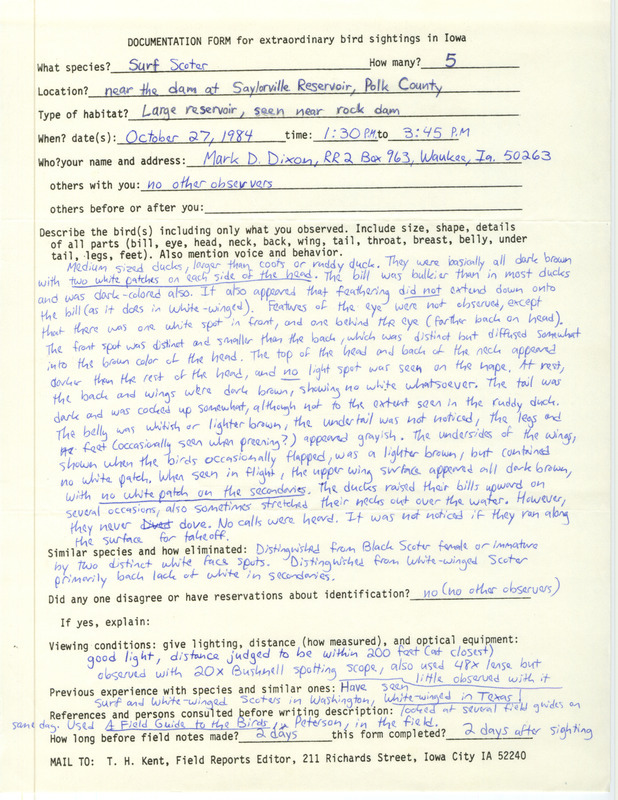 DOCUMENTATION FORM for extraordinary bird sightings in Iowa
What species? Surf Scoter How many? 5
Location? near the dam at Saylorville Reservoir, Polk County
Type of habitat? Large reservoir, seen near rock dam
When? date(s): October 27, 1984 time: 1:30 P.M. to 3:45 P.M
Who? your name and address: Mark D. Dixon, RR 2 Box 963, Waukee, Ia. 50263
others with you: no other observers
others before or after you:
Describe the bird(s) including only what you observed. Include size, shape, details
of all parts (bill, eye, head, neck, back, wing, tail, throat, breast, belly, under
tail, legs, feet). Also mention voice and behavior.
Medium sized ducks, larger than coots or ruddy duck. They were basically all dark brown
with two white patches on each side of the head. The bill was bulkier than in most ducks
and was dark-colored also. It also appeared that feathering did not extend down onto
the bill (as it does in white-winged). Features of the eye were not observed, except
that there was one white spot in front, and one behind the eye (farther back on head).
The front spot was distinct and smaller than the back, which was distinct but diffused somewhat
into the brown color of the head. The top of the head and back of the neck appeared
darker than the rest of the head, and no light spot was seen on the nape. At rest,
the back and wings were dark brown, showing no white whatsoever. The tail was
dark and was cocked up somewhat, although not to the extent seen in the ruddy duck.
The belly was whitish or lighter brown, the undertail was not noticed, the legs and
feet (occasionally seen when preening?) appeared grayish. The undersides of the wings,
shown when the birds occasionally flapped, was a lighter brown, but contained
no white patch. When seen in flight, the upper wing surface appeared all dark brown,
with no white patch on the secondaries. The ducks raised their bills upward on
several occasions, also sometimes stretched their necks out over the water. However,
they never dived dove. No calls were heard. It was not noticed if they ran along
the surface for takeoff.
Similar species and how eliminated: Distinguished from Black Scoter female or immature
by two distinct white face spots. Distinguished from White-winged Scoter
primarily back lack of white in secondaries.
Did any one disagree or have reservations about identification? no (no other observers)
If yes, explain:
Viewing conditions: give lighting, distance (how measured), and optical equipment:
good light, distance judged to be within 200 feet (at closest)
observed with 20x Bushnell spotting scope, also used 48x lense but
little observed with it
Previous experience with species and similar ones: Have seen
Surf and White-winged Scoters in Washington, White-winged in Texas!
References and persons consulted before writing description: looked at several field guides on
same day. Used A Field Guide to the Birds, Peterson, in the field.
How long before field notes made? 2 days this form completed? 2 days after sighting
MAIL TO: T. H. Kent, Field Reports Editor, 211 Richards Street, Iowa City IA 52240